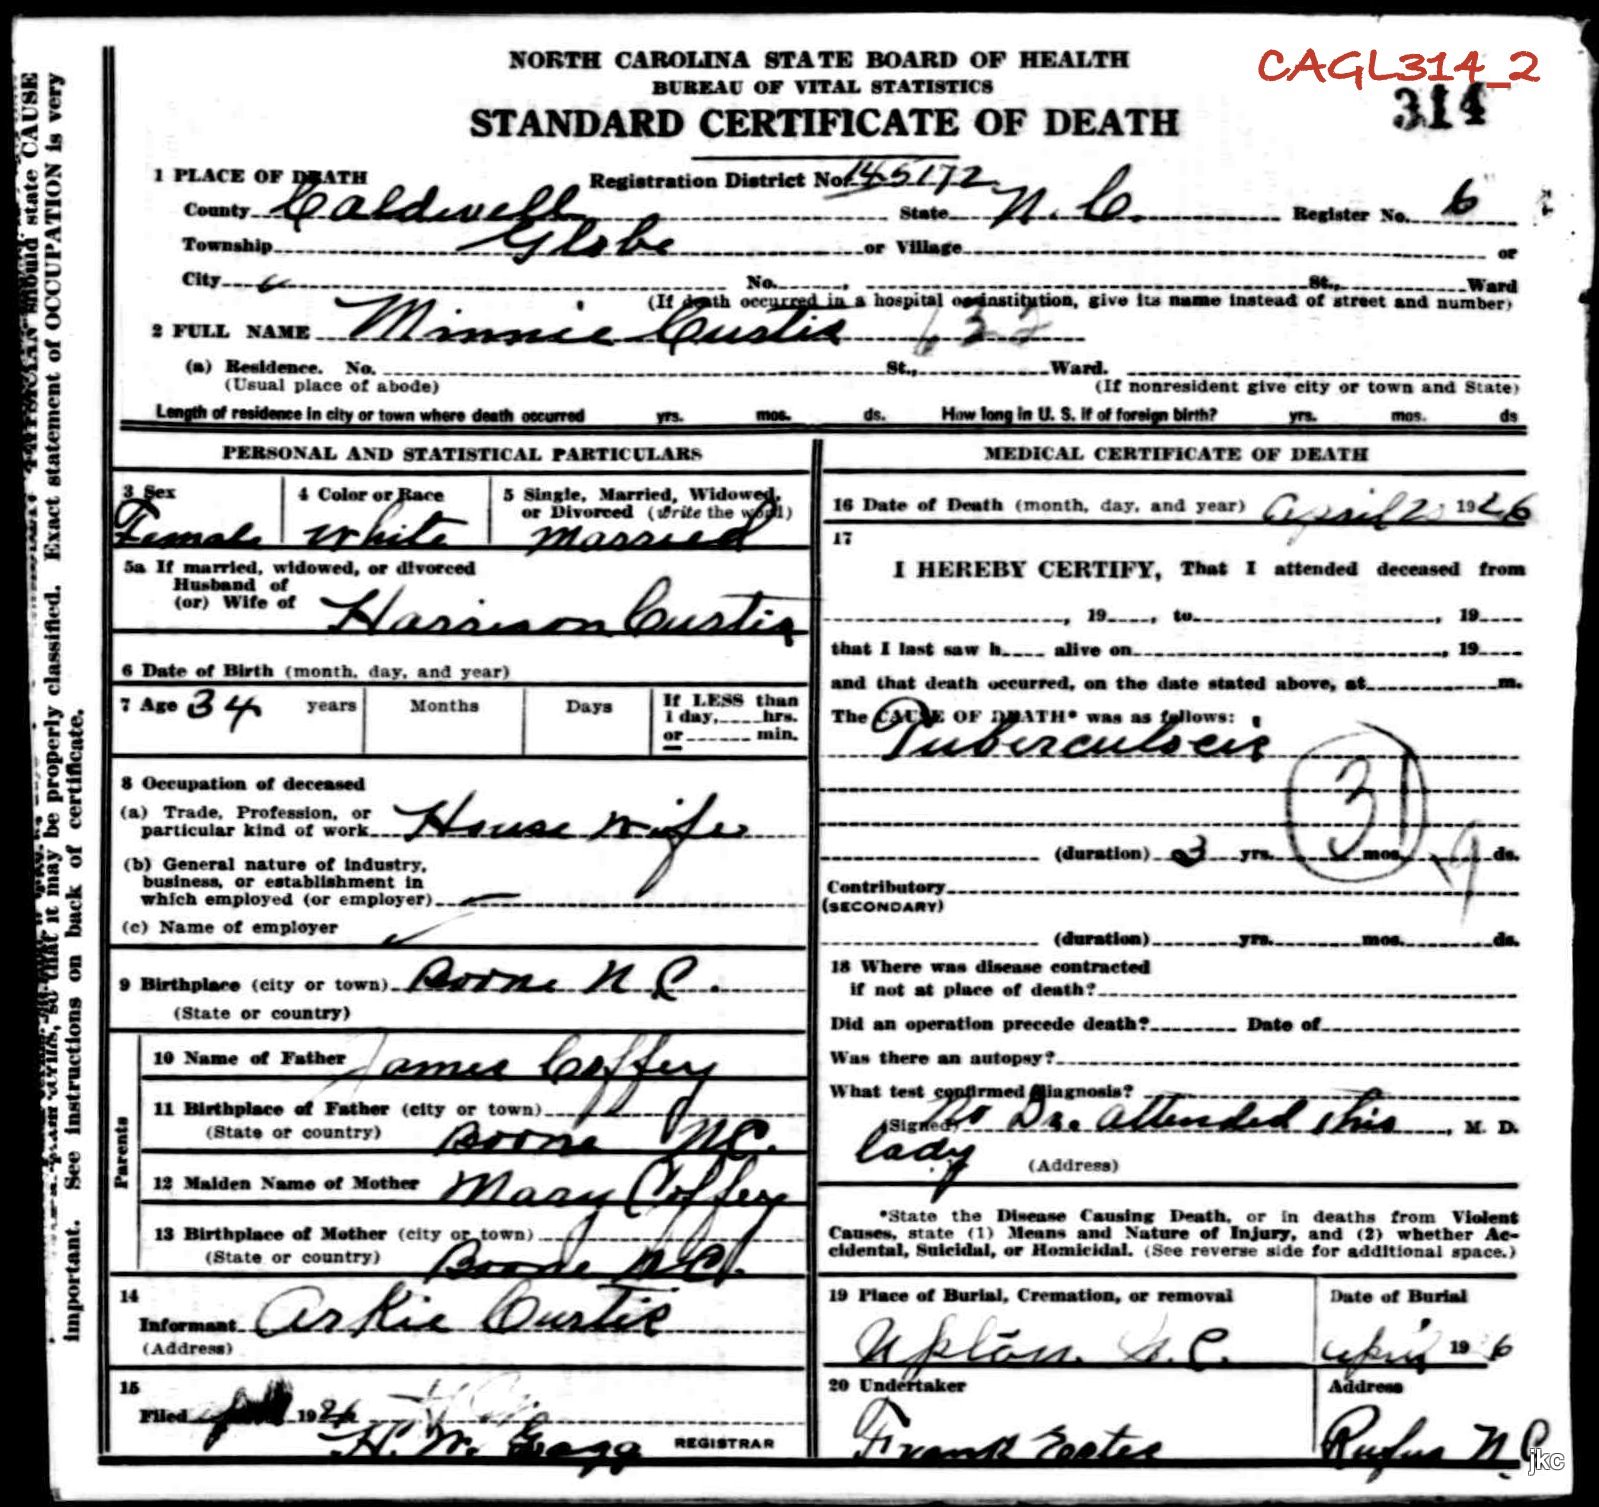 NORTH CAROLINA STATE BOARD OF HEALTH
BUREAU OF VITAL STATISTICS
STANDARD CERTIFICATE OF DEATH
CAGL314_2
314
1 PLACE OF DEATH
Registration District No. 145172
County Caldwell State N. C. Register No. 6
Township Globe or Village or
City No. St., Ward
(If death occurred in a hospital or institution, give its name instead of street and number)
2 FULL NAME Minnie Curtis
(a) Residence. No. St., Ward.
(Usual place of abode) (If nonresident give city or town and State)
Length of residence in city or town where death occurred yrs. mos. ds. How long in U. S. if of foreign birth? yrs. mos. ds
PERSONAL AND STATISTICAL PARTICULARS
3 Sex 4 Color or Race 5 Single, Married, Widowed,
or Divorced (write the word)
Female White Married
5a If married, widowed, or divorced
Husband of
(or) Wife of Harrison Curtis
6 Date of Birth (month, day, and year)
7 Age 34 years Months Days If LESS than
1 day, hrs.
or min.
8 Occupation of deceased
(a) Trade, Profession, or
particular kind of work House wife
(b) General nature of industry,
business, or establishment in
which employed (or employer)
(c) Name of employer
9 Birthplace (city or town) Boone N C.
(State or country)
Parents
10 Name of Father James Coffey
11 Birthplace of Father (city or town)
(State or country) Boone NC.
12 Maiden Name of Mother Mary Coffey
13 Birthplace of Mother (city or town)
(State or country) Boone NC.
14
Informant Arkie Curtis
(Address)
15
Filed 1926
H. W. Gragg REGISTRAR
MEDICAL CERTIFICATE OF DEATH
16 Date of Death (month, day, and year) April 1926
17
I HEREBY CERTIFY, That I attended deceased from
, 19 , to , 19
that I last saw h alive on , 19
and that death occurred, on the date stated above, at m.
The CAUSE OF DEATH* was as follows:
Tuberculosis
31
(duration) 3 yrs. mos. ds.
Contributory
(SECONDARY)
(duration) yrs. mos. ds.
18 Where was disease contracted
if not at place of death?
Did an operation precede death? Date of
Was there an autopsy?
What test confirmed diagnosis?
(Signed) No Dr. attended this , M. D.
lady (Address)
*State the Disease Causing Death, or in deaths from Violent
Causes, state (1) Means and Nature of Injury, and (2) whether Ac-
cidental, Suicidal, or Homicidal. (See reverse side for additional space.)
19 Place of Burial, Cremation, or removal Date of Burial
Upton. N. C. 19 6
20 Undertaker Address
Frank Estes Rufus N. C
jkc
should state CAUSE
Exact statement of OCCUPATION is very
so that it may be properly classified.
important. See instructions on back of certificate.